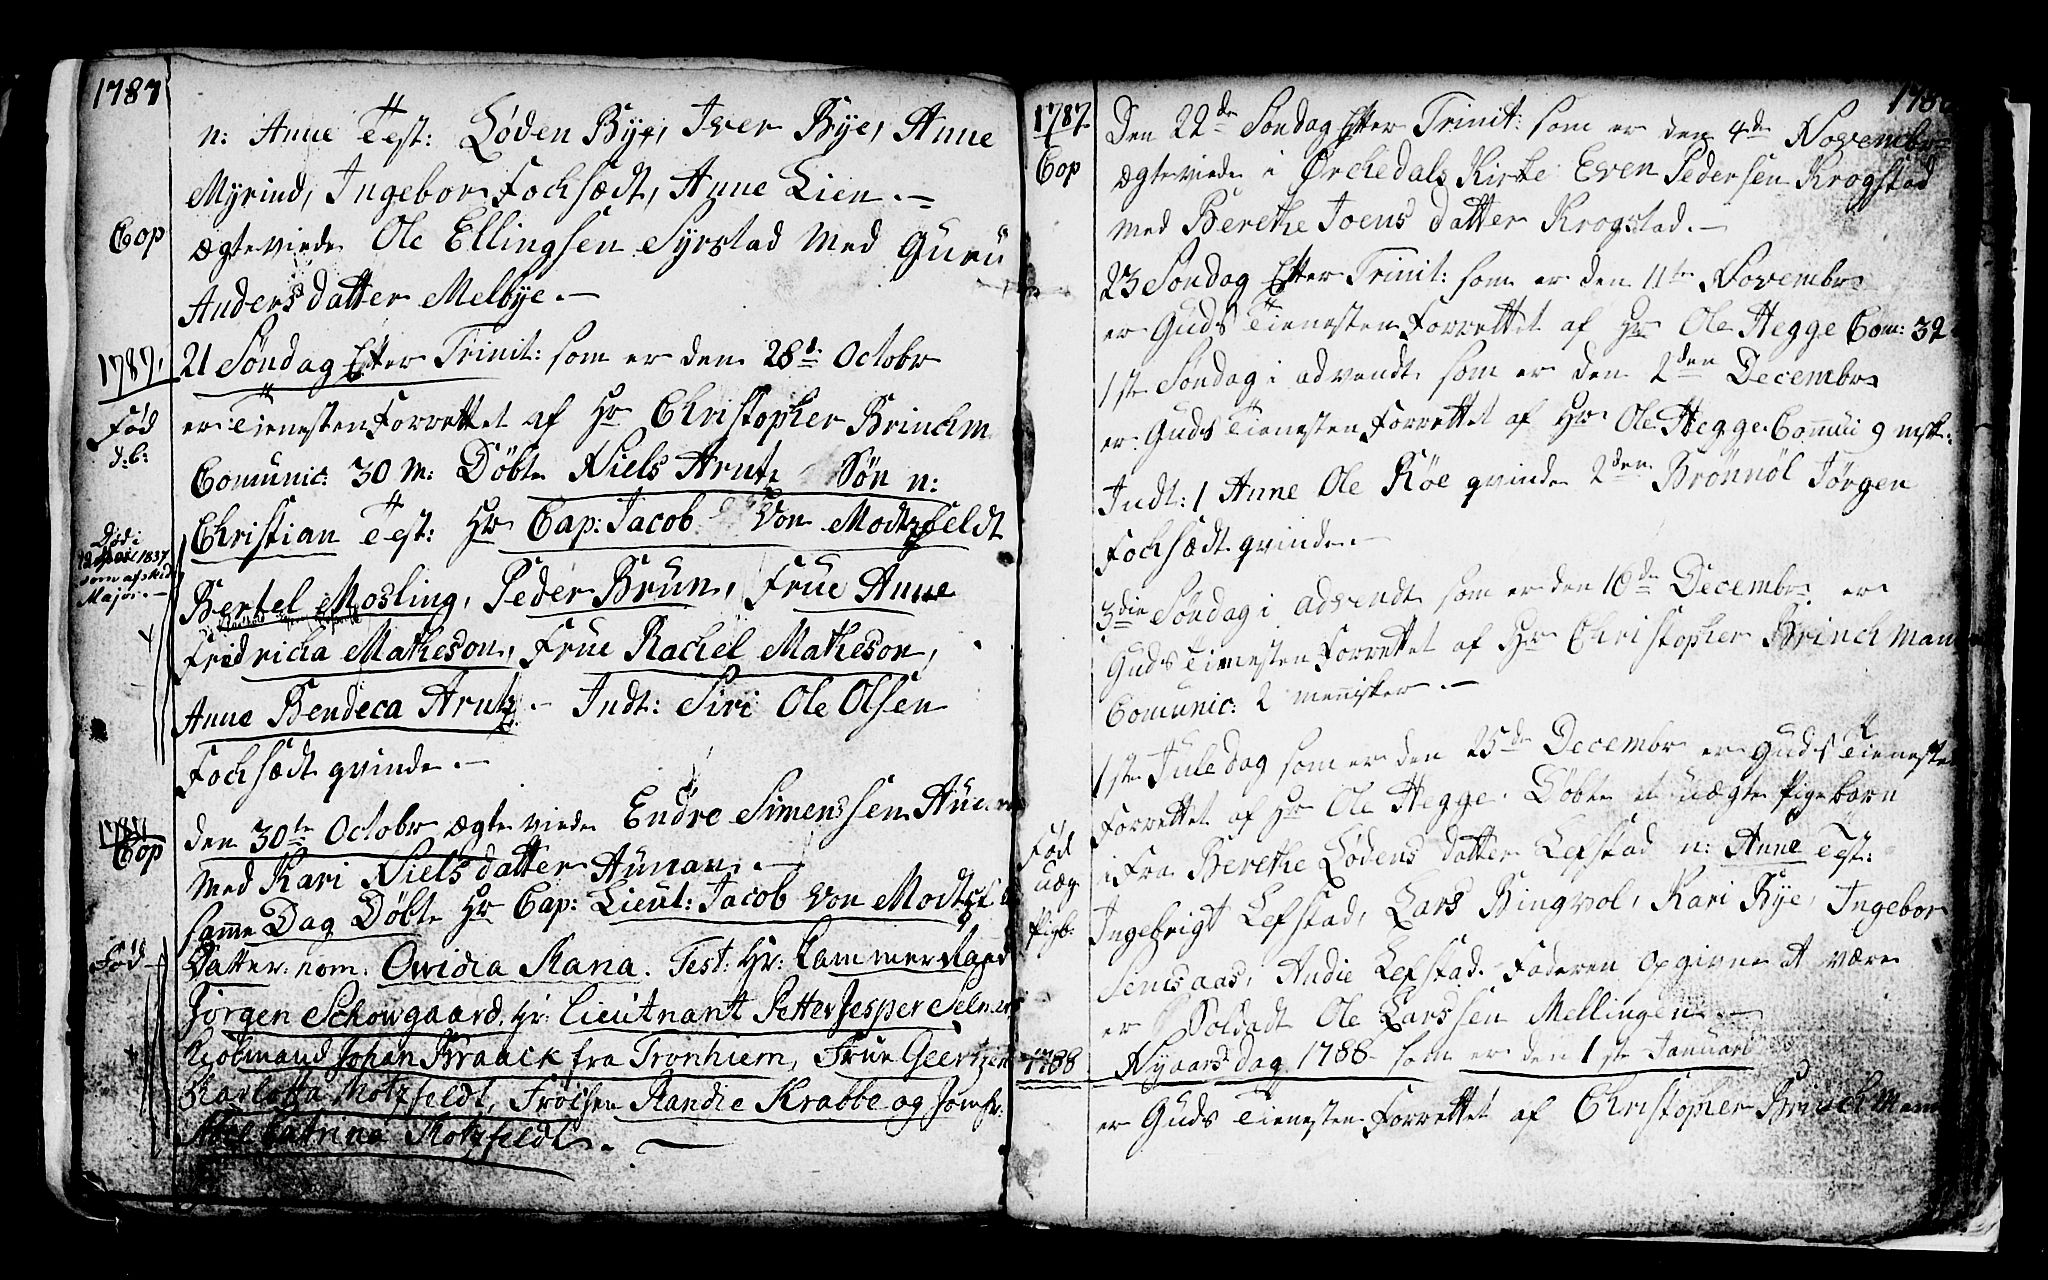 1787
n: Anne Test: Løden Bye, Iver Bye, Anne
Myrind, Ingebor Fochsædt, Anne Lien. —
Cop
ægteviede Ole Ellingsen Syrstad med Guru
Anders datter Melbye. —
1787.
21 Søndag Efter Trinit: som er den 28d Octobr
Fød
d:b:
er Tienesten Forrettet af Hr Christopher Brinchm
Comunic: 30 M: Døbt Niels Arntz Søn n:
Christian Test: Hr Cap: Jacob von Modtzfeldt
Død i
1837
som afsked
Major. —
Bertel Mosling, Peder Brun, Frue Anne
Fridricha Matheson, Frue Rachel Matheson,
Anne Bendeca Arntz. — Indt: Siri Ole Olsen
Fochsædt qvinde. —
1787
Cop
den 30te Octobr ægteviede Endre Simenssen
med Kari Nielsdatter Aunan. —
samme Dag Døbt Hr Cap: Lieut: Jacob von
Fød
Datter: nom: Owidia Rana. Test: Hr: Kammerraad
Jörgen Schowgaard, Hr: Lieutnant Petter Jesper
Kiøbmand Johan Braack fra Tronhiem, Frue
Karlotta Motzfeldt, Frøicken Randie Krabbe og Jomfr:
Catrina Motzfeldt. —
1787.
Cop
Den 22de Søndag Efter Trinit: som er den 4de Novembr
ægteviede i Ørchedals Kirke Even Pedersen Krogstad
med Berethe Joens datter Krogstad. —
23 Søndag Efter Trinit: som er den 11te Novembr
er Guds Tienesten Forrettet af Hr Ole Hegge Com: 32
1ste Søndag i advendt som er den 2den Decembr
er Guds Tienesten Forrettet af Hr Ole Hegge Communi 9 msk:
Indt: 1 Anne Ole Røe qvinde 2den Brønnøl Jørgen
Fochsædt qvinde. —
3die Søndag i advendt som er den 16de Decembr er
Guds Tienesten Forrettet af Hr Christopher Brinchman
Comunic: 2 mennisker. —
1ste Juledag som er den 25de Decembr er Guds Tieneste
Forrettet af Hr Ole Hegge. Døbt et uægte Pigebarn
Fød
uæg
Pigb:
i Fra Berethe Lødens datter Lefstad n: Anne Test:
Ingebrigt Lefstad, Lars Bingvol, Kari Bye, Ingebor
Semsaas, Andie Lefstad. Faderen opgivne at være
er Soldadt Ole Larssen Mellingen. —
1788
Nyaars dag 1788 som er den 1ste Januari
er Guds Tienesten Forrettet af Christopher Brinchman